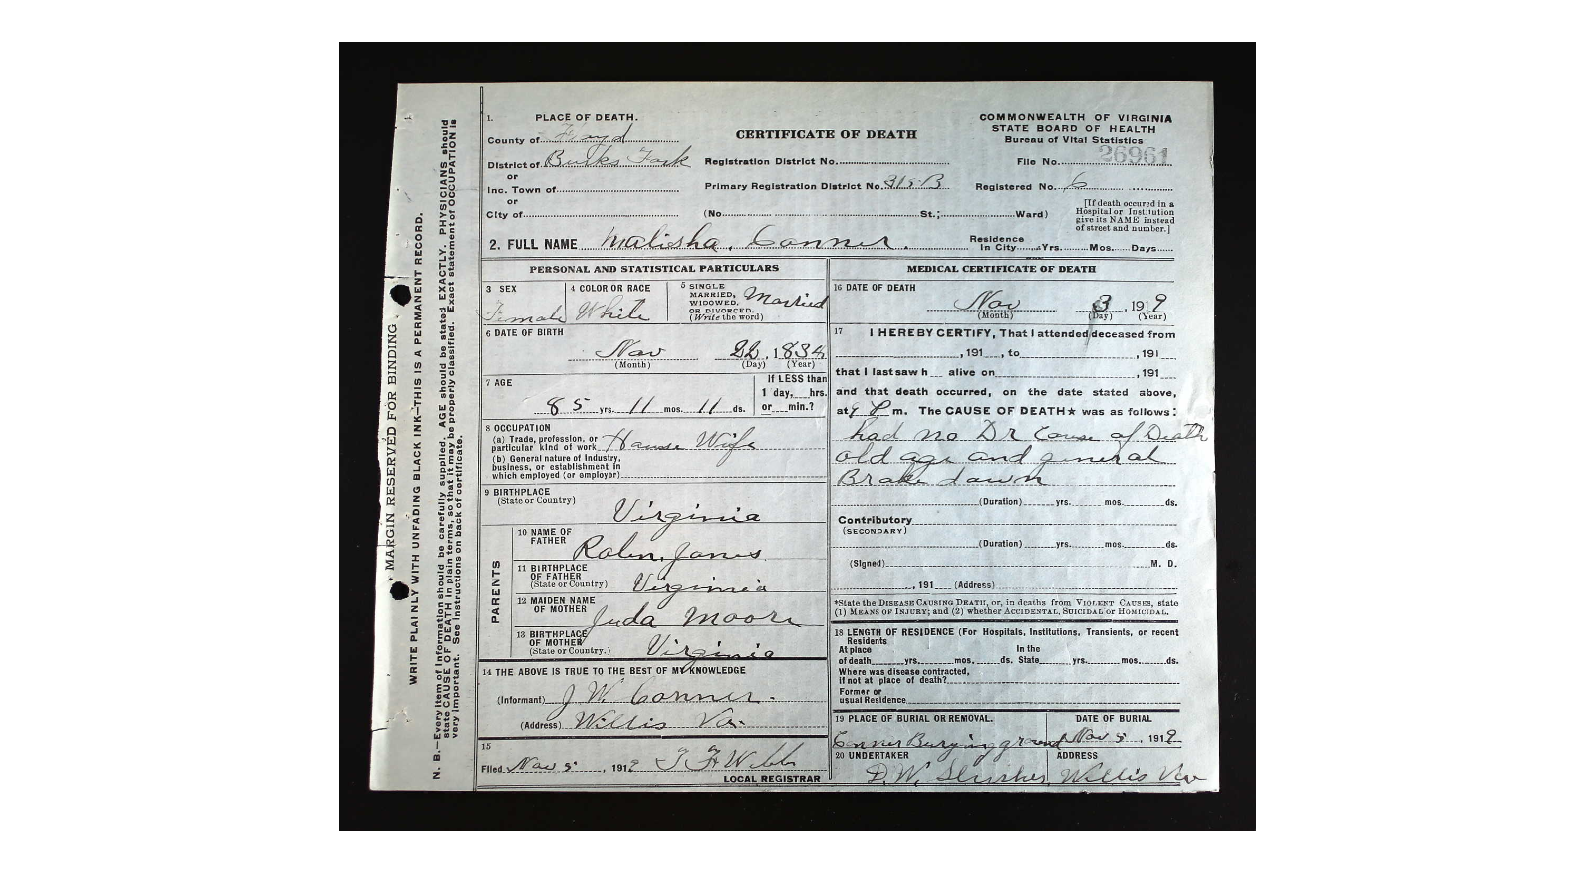 MARGIN RESERVED FOR BINDING
WRITE PLAINLY WITH UNFADING BLACK INK—THIS IS A PERMANENT RECORD.
N. B.—Every item of information should be carefully supplied. AGE should be stated EXACTLY. PHYSICIANS should
state CAUSE OF DEATH in plain terms, so that it may be properly classified. Exact statement of OCCUPATION is
very important. See instructions on back of certificate.
1. PLACE OF DEATH.
County of Floyd
District of Burks Fork
or
Inc. Town of
or
City of
CERTIFICATE OF DEATH
Registration District No.
Primary Registration District No. 315-B
(No. St.; Ward)
COMMONWEALTH OF VIRGINIA
STATE BOARD OF HEALTH
Bureau of Vital Statistics
File No. 26961
Registered No. 6
[If death occured in a
Hospital or Institution
give its NAME instead
of street and number.]
2. FULL NAME Malisha. Conner.
Residence
In City Yrs. Mos. Days
PERSONAL AND STATISTICAL PARTICULARS
3 SEX
Female
4 COLOR OR RACE
White
5 SINGLE
MARRIED,
WIDOWED,
OR DIVORCED.
(Write the word)
Married
6 DATE OF BIRTH
Nov 22, 1834
(Month) (Day) (Year)
7 AGE
85 yrs. 11 mos. 11 ds.
If LESS than
1 day, hrs.
or min.?
8 OCCUPATION
(a) Trade, profession, or
particular kind of work House Wife
(b) General nature of Industry,
business, or establishment in
which employed (or employer)
9 BIRTHPLACE
(State or Country)
Virginia
PARENTS
10 NAME OF
FATHER
Janes
11 BIRTHPLACE
OF FATHER
(State or Country) Virginia
12 MAIDEN NAME
OF MOTHER
Juda Moore
13 BIRTHPLACE
OF MOTHER
(State or Country.) Virginia
14 THE ABOVE IS TRUE TO THE BEST OF MY KNOWLEDGE
(Informant) J W. Conner.
(Address) Willis Va.
15
Filed Nov 5, 1919 T F Webb
LOCAL REGISTRAR
MEDICAL CERTIFICATE OF DEATH
16 DATE OF DEATH
Nov 3, 19 9
(Month) (Day) (Year)
17 I HEREBY CERTIFY, That I attended deceased from
, 191 , to , 191
that I last saw h alive on , 191
and that death occurred, on the date stated above,
at 9 P m. The CAUSE OF DEATH★ was as follows:
had no Dr Cause of Death
old age and general
Brake down
(Duration) yrs. mos. ds.
Contributory
(SECONDARY)
(Duration) yrs. mos. ds.
(Signed) M. D.
, 191 (Address)
*State the DISEASE CAUSING DEATH, or, in deaths from VIOLENT CAUSES, state
(1) MEANS OF INJURY; and (2) whether ACCIDENTAL, SUICIDAL or HOMICIDAL.
18 LENGTH OF RESIDENCE (For Hospitals, Institutions, Transients, or recent
Residents
At place In the
of death yrs. mos. ds. State yrs. mos. ds.
Where was disease contracted,
If not at place of death?
Former or
usual Residence
19 PLACE OF BURIAL OR REMOVAL.
Conner Burying ground
DATE OF BURIAL
Nov 5, 1919
20 UNDERTAKER
D. W. Slusher
ADDRESS
Willis Va